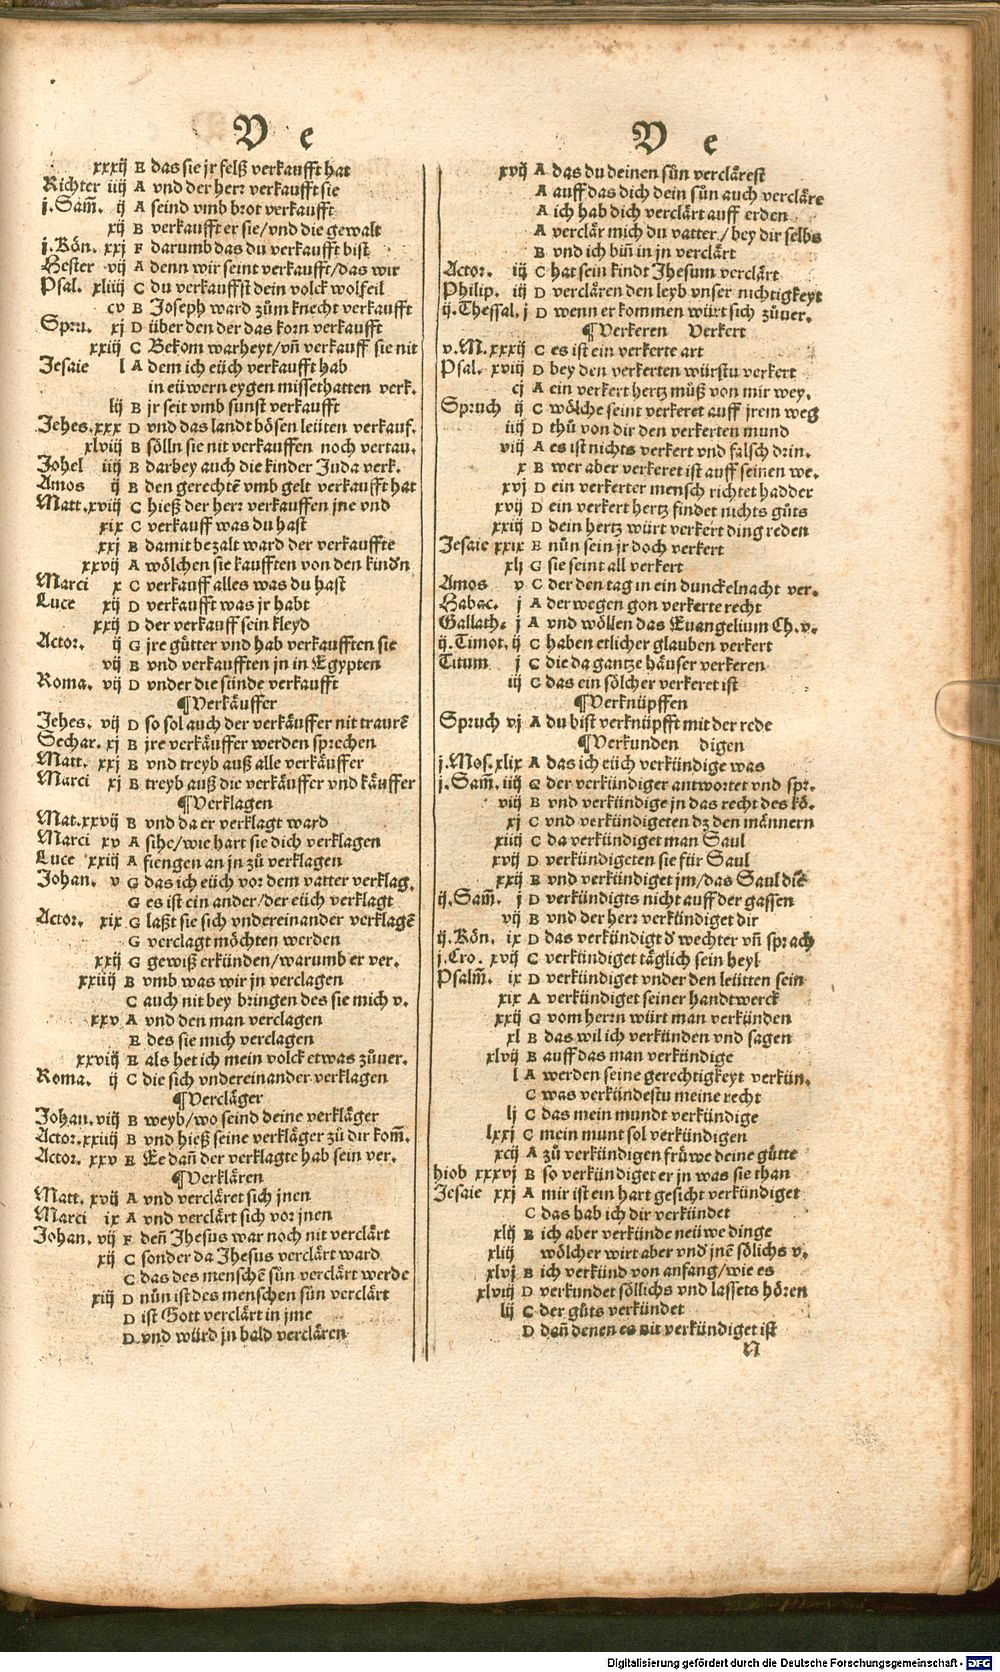 V e
xxxij E das sie jr felß verkaufft hat
Richter iiij A vnd der herr verkaufft sie
j.Sam̃. ij A seind vmb brot verkaufft
xij B verkaufft er sie/vnd die gewalt
j.Kön. xxj F darumb das du verkaufft bist
Hester vij A denn wir seint verkaufft/das wir
Psal. xliiij C du verkauffst dein volck wolfeil
cv B Joseph ward zům knecht verkaufft
Spru. xj D über den der das korn verkaufft
xxiij C Bekom warheyt/vñ verkauff sie nit
Jesaie l A dem ich eüch verkaufft hab
in eüwern eygen missethatten verk.
lij B jr seit vmb sunst verkaufft
Jehes.xxx D vnd das landt bösen leüten verkauf.
xlviij B sölln sie nit verkauffen noch vertau.
Johel iiij B darbey auch die kinder Juda verk.
Amos ij B den gerechtẽ vmb gelt verkaufft hat
Matt.xviij C hieß der herr verkauffen jne vnd
xix C verkauff was du hast
xxj B damit bezalt ward der verkauffte
xxvij A wölchen sie kaufften von den kindn
Marci x C verkauff alles was du hast
Luce xij D verkaufft was jr habt
xxij D der verkauff sein kleyd
Actor. ij G jre gůtter vnd hab verkaufften sie
vij B vnd verkaufften jn in Egypten
Roma. vij D vnder die sünde verkaufft
¶Verkäuffer
Jehes. vij D so sol auch der verkäuffer nit traurẽ
Sechar. xj B jre verkäuffer werden sprechen
Matt. xxj B vnd treyb auß alle verkäuffer
Marci xj B treyb auß die verkäuffer vnd käuffer
¶Verklagen
Mat.xxvij B vnd da er verklagt ward
Marci xv A sihe/wie hart sie dich verklagen
Luce xxiij A fiengen an jn zů verklagen
Johan. v G das ich eüch vor dem vatter verklag.
G es ist ein ander/der eüch verklagt
Actor. xix G laßt sie sich vndereinander verklagẽ
G verclagt möchten werden
xxij G gewiß erkünden/warumb er ver.
xxiiij B vmb was wir jn verclagen
C auch nit bey bringen des sie mich v.
xxv A vnd den man verclagen
E des sie mich verclagen
xxviij E als het ich mein volck etwas zůuer.
Roma. ij C die sich vndereinander verklagen
¶Vercläger
Johan.viij B weyb/wo seind deine verkläger
Actor.xxiiij B vnd hieß seine verkläger zů dir kom̃.
Actor. xxv E Ee dañ der verklagte hab sein ver.
¶Verklären
Matt. xvij A vnd verclåret sich jnen
Marci ix A vnd verclärt sich vor jnen
Johan. vij F deñ Jhesus war noch nit verclärt
xij C sonder da Jhesus verclärt ward
C das des menschẽ sůn verclärt werde
xiij D nůn ist des menschen sůn verclärt
D ist Gott verclärt in jme
D vnd würd jn bald verclären
V e
xvij A das du deinen sůn verclärest
A auff das dich dein sůn auch vercläre
A ich hab dich verclärt auff erden
A verclär mich du vatter/bey dir selbs
B vnd ich biñ in jn verclärt
Actor. iij C hat sein kindt Jhesum verclärt
Philip. iij D verclären den leyb vnser nichtigkeyt
ij.Thessal. j D wenn er kommen würt sich zůuer.
¶Verkeren Verkert
v.M.xxxij C es ist ein verkerte art
Psal. xviij D bey den verkerten würstu verkert
cj A ein verkert hertz můß von mir wey.
Spruch ij C wölche seint verkeret auff jrem weg
iiij D thů von dir den verkerten mund
viij A es ist nichts verkert vnd falsch drin.
x B wer aber verkeret ist auff seinen we.
xvj D ein verkerter mensch richtet hadder
xvij D ein verkert hertz findet nichts gůts
xxiij D dein hertz würt verkert ding reden
Jesaie xxix E nůn sein jr doch verkert
xlj G sie seint all verkert
Amos v C der den tag in ein dunckelnacht ver.
Habac. j A derwegen gon verkerte recht
Gallath. j A vnd wöllen das Euangelium Ch.v.
ij.Timot. ij C haben etlicher glauben verkert
Titum j C die da gantze häuser verkeren
iij C das ein sölcher verkeret ist
¶Verknüpffen
Spruch vj A du bist verknüpfft mit der rede
¶Verkunden digen
j.Mos.xlix A das ich eüch verkündige was
j.Sam̃. iiij C der verkündiger antwortet vnd spr.
viij B vnd verkündige jn das recht des kö.
xj C vnd verkündigeten dz den männern
xiiij C da verkündiget man Saul
xvij D verkündigeten sie für Saul
xxij B vnd verkündiget jm/das Saul die
ij.Sam̃. j D verkündigts nicht auff der gassen
vij B vnd der herr verkündiget dir
ij.Kön. ix D das verkündigt d̕ wechter vñ sprach
j.Cro. xvij C verkündiget täglich sein heyl
Psalm̃. ix D verkündiget vnder den leütten sein
xix A verkündiget seiner handtwerck
xxij G vom herrn würt man verkünden
xl B das wil ich verkünden vnd sagen
xlvij B auff das man verkündige
l A werden seine gerechtigkeyt verkün.
C was verkündestu meine recht
lj C das mein mundt verkündige
lxxj C mein munt sol verkündigen
xcij A zů verkündigen frůwe deine gůtte
hiob xxxvj B so verkündiget er jn was sie than
Jesaie xxj A mir ist ein hart gesicht verkündiget
C das hab ich dir verkündet
xlij B ich aber verkünde neüwe dinge
xliij wölcher wirt aber vnd jnẽ sölichs v.
xlvj B ich verkünd von anfang/wie es
xlviij D verkundet söllichs vnd lassets hören
lij C der gůts verkündet
D dañ denen es nit verkündiget ist
N
Digitalisierung gefördert durch die Deutsche Forschungsgemeinschaft - DFG